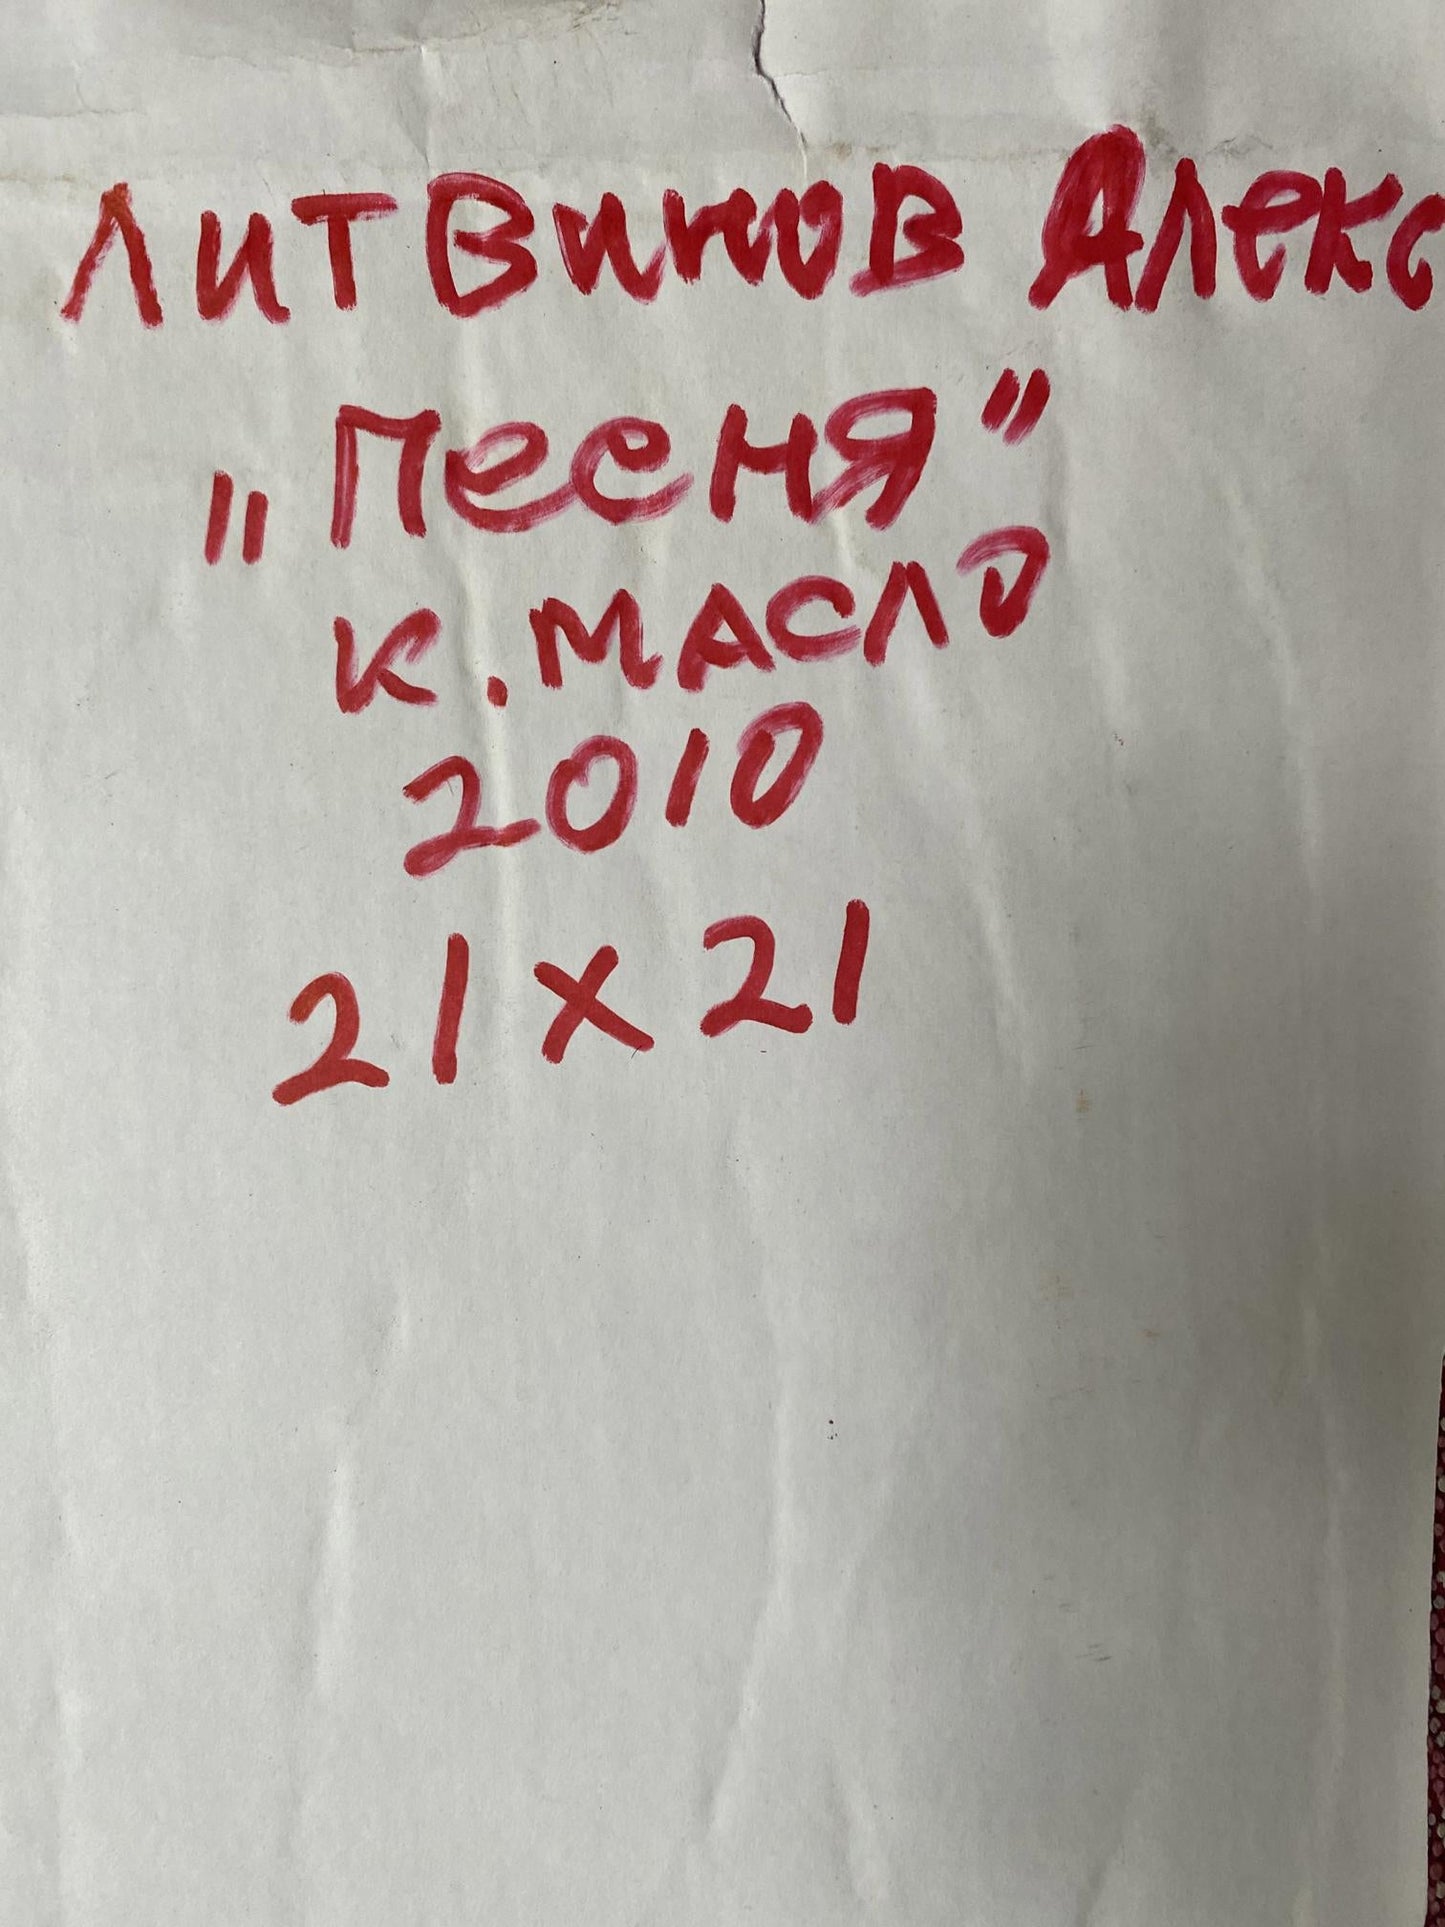 Литвинов Алекс
„Песня"
к. масло
2010
21 x 21